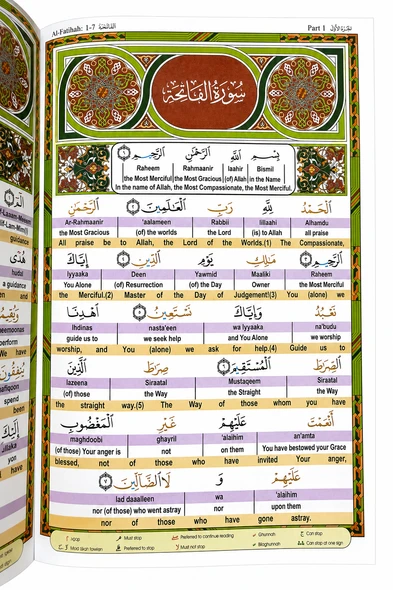 Al-Fatihah: 1-7 الفاتحة
Part 1
سورة الفاتحة
بِسْمِ اللَّهِ الرَّحْمَٰنِ الرَّحِيمِ
Raheem Rahmaanir laahir Bismil
the Most Merciful. the Most Gracious (of) Allah, in the Name
In the name of Allah, the Most Compassionate, the Most Merciful.
الْحَمْدُ لِلَّهِ رَبِّ الْعَالَمِينَ الرَّحْمَٰنِ
Ar-Rahmaanir 'aalameen Rabbil lillaahi Alhamdu
the Most Gracious (of) the worlds the Lord (is) to Allah all praise
All praise be to Allah, the Lord of the Worlds.(1) The Compassionate,
الرَّحِيمِ مَالِكِ يَوْمِ الدِّينِ إِيَّاكَ
Iyyaaka Deen Yawmid Maaliki Raheem
You Alone (of) Resurrection (of) the Day Owner the Most Merciful
the Merciful.(2) Master of the Day of Judgement!(3) You (alone) we
نَعْبُدُ وَإِيَّاكَ نَسْتَعِينُ اهْدِنَا
Ihdinas nasta'een wa Iyyaaka na'budu
guide us to we seek help and You Alone we worship
worship, and You (alone) we ask for help.(4) Guide us to
الصِّرَاطَ الْمُسْتَقِيمَ صِرَاطَ الَّذِينَ
lazeena Siraatal Mustaqeem Siraatal
(of) those the Way the Straight the Way
the straight way.(5) The Way of those whom you have
أَنْعَمْتَ عَلَيْهِمْ غَيْرِ الْمَغْضُوبِ
maghdoobi ghayril 'alaihim an'amta
(of those) Your anger is not on them You have bestowed your Grace
blessed, not of those who have invited Your anger,
عَلَيْهِمْ وَ لَا الضَّالِّينَ
lad daaalleen wa 'alaihim
nor (of those) who went astray nor upon them
nor of those who have gone astray.
Must stop Preferred to continue reading Ghunnah Can stop
Preferred to stop Must not stop Bilaghunnah Can stop at one sign